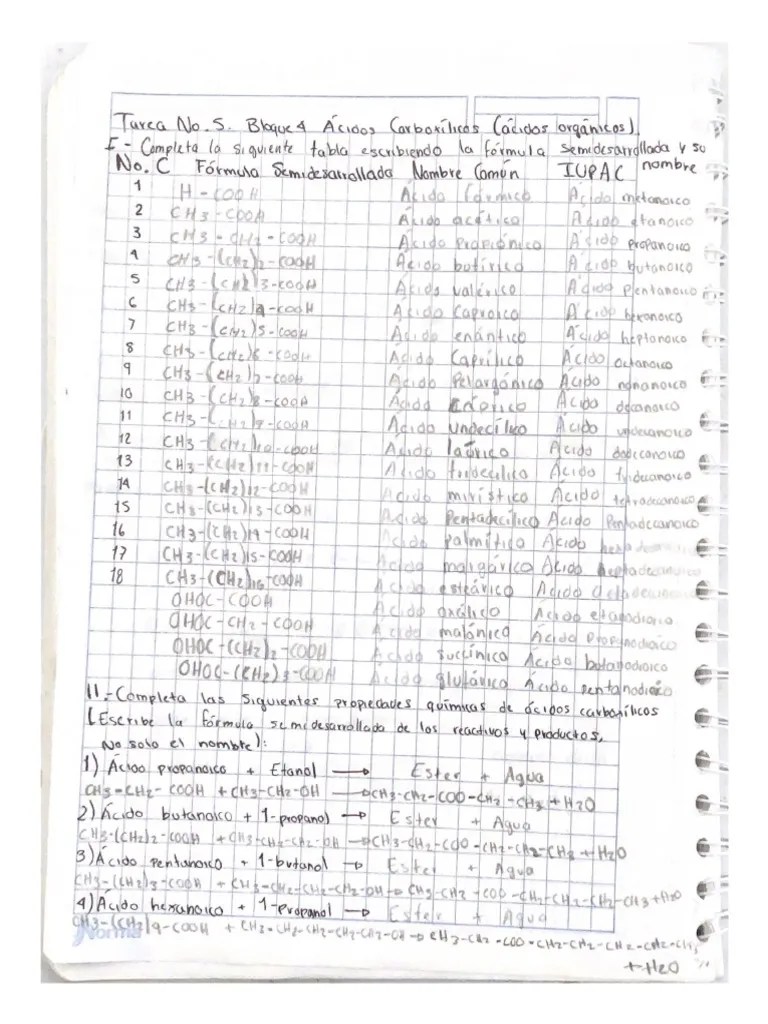 Tarea No. 5. Bloque 4 Ácidos Carboxílicos (ácidos orgánicos).
I.- Completa la siguiente tabla escribiendo la fórmula semidesarrollada y su nombre
No. C Fórmula Semidesarrollada Nombre Común IUPAC
1 H-COOH Ácido fórmico Ácido metanoico
2 CH3-COOH Ácido acético Ácido etanoico
3 CH3-CH2-COOH Ácido Propiónico Ácido propanoico
4 CH3-(CH2)2-COOH Ácido butírico Ácido butanoico
5 CH3-(CH2)3-COOH Ácido valérico Ácido pentanoico
6 CH3-(CH2)4-COOH Ácido Caproico Ácido hexanoico
7 CH3-(CH2)5-COOH Ácido enántico Ácido heptanoico
8 CH3-(CH2)6-COOH Ácido Caprílico Ácido octanoico
9 CH3-(CH2)7-COOH Ácido Pelargónico Ácido nonanoico
10 CH3-(CH2)8-COOH Ácido Ácido decanoico
11 CH3-(CH2)9-COOH Ácido undecílico Ácido undecanoico
12 CH3-(CH2)10-COOH Ácido laúrico Ácido dodecanoico
13 CH3-(CH2)11-COOH Ácido tridecílico Ácido tridecanoico
14 CH3-(CH2)12-COOH Ácido mirístico Ácido tetradecanoico
15 CH3-(CH2)13-COOH Ácido Pentadecílico Ácido Pentadecanoico
16 CH3-(CH2)14-COOH Ácido palmítico Ácido
17 CH3-(CH2)15-COOH Ácido margárico Ácido heptadecanoico
18 CH3-(CH2)16-COOH Ácido esteárico Ácido
OHOC-COOH Ácido oxálico Ácido etanodioico
OHOC-CH2-COOH Ácido malónico Ácido Propanodioico
OHOC-(CH2)2-COOH Ácido succínico Ácido butanodioico
OHOC-(CH2)3-COOH Ácido glutárico Ácido pentanodioico
II.-Completa las siguientes propiedades químicas de ácidos carboxílicos
(Escribe la fórmula semidesarrollada de los reactivos y productos,
No solo el nombre):
1) Ácido propanoico + Etanol → Ester + Agua
CH3-CH2-COOH + CH3-CH2-OH → CH3-CH2-COO-CH2-CH3 + H2O
2) Ácido butanoico + 1-propanol → Ester + Agua
CH3-(CH2)2-COOH + CH3-CH2-CH2-OH → CH3-CH2-COO-CH2-CH2-CH3 + H2O
3) Ácido pentanoico + 1-butanol → Ester + Agua
CH3-(CH2)3-COOH + CH3-CH2-CH2-CH2-OH → CH3-CH2-COO-CH2-CH2-CH2-CH3 + H2O
4) Ácido hexanoico + 1-propanol → Ester + Agua
CH3-(CH2)4-COOH + CH3-CH2-CH2-CH2-CH2-OH → CH3-CH2-COO-CH2-CH2-CH2-CH2-CH3
+ H2O
Norma